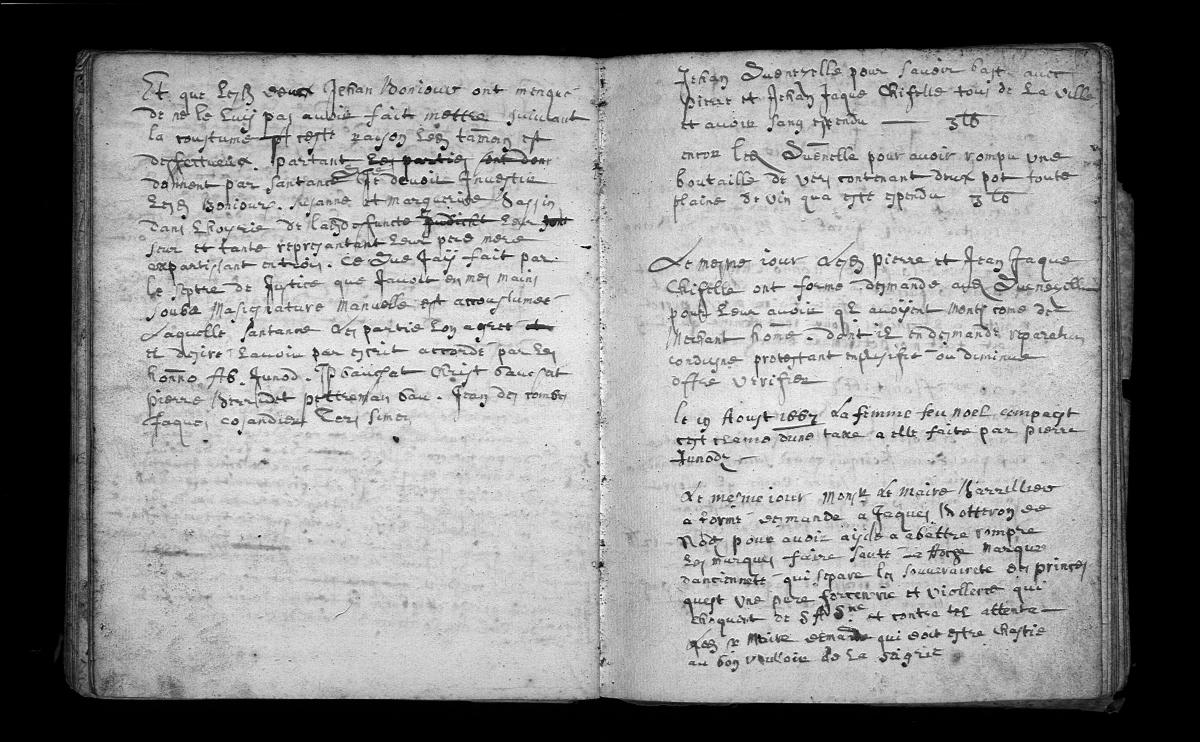 Et que Lesd deux Jehan Bonjour ont menque
de ne le Luy pas avoir fait mettre suivant
la coustume pt ceste raison Led tamen est
deffectueux. Partant Les parties sont dont
donnent par santance devoir Investir
Lesd Bonjour. Susanne et marguerite Bassin
dans Lhoyrie de lad deffuncte Leur
seur et tante represantant Leur pere mere
expartissant entrois. Ce Que Jay fait par
le septre de Justice que Javoit en mes mains
soubz Ma signature Manuelle est accoustumee
Laquelle santance Les partie Lon agree et
et desire Lavoir par escrit accorde par Les
honno Ab. Junod. Gauchat Christ Gauchat
pierre Berrudet petreman Gau. Jean des combes
Jaques cosandier
Jehan Quenezelle pour savoir bastu avec
Pierre et Jehan Jaque Chifelle tous de La ville
et avoir sang espendu — 3 lb
encor led Quenelle pour avoir rompu une
boutaille de vers contenant deux pot toute
plaine de vin qua este ependu 3 lb
Le mesme jour Lesd pierre et Jean Jaque
Chifelle ont forme demande aud Quenezelle
pour Leur avoir qL avoyent Montz come de
Mechant home. dont iL en demande reparation
condigne protestant enplusifie ou diminue
offre verifier
le 19 Aoust 1667 La femme feu noel compagt
cest clame dune taxe a elle faite par pierre
Junod
Le mesme jour Monsr Le Maire Barrillier
a forme demande a Jaques Botteron de
Nods pour avoir aisde a abattre rompre
Les murques faire saute Marque
danciennete qui separe les souverainete des princes
quest une pure forcenrie et viollence qui
choquent de S A Sme et contre tel attenta
Led sr Maire demande qui doit estre chastie
au bon voulloir de La Sigrie